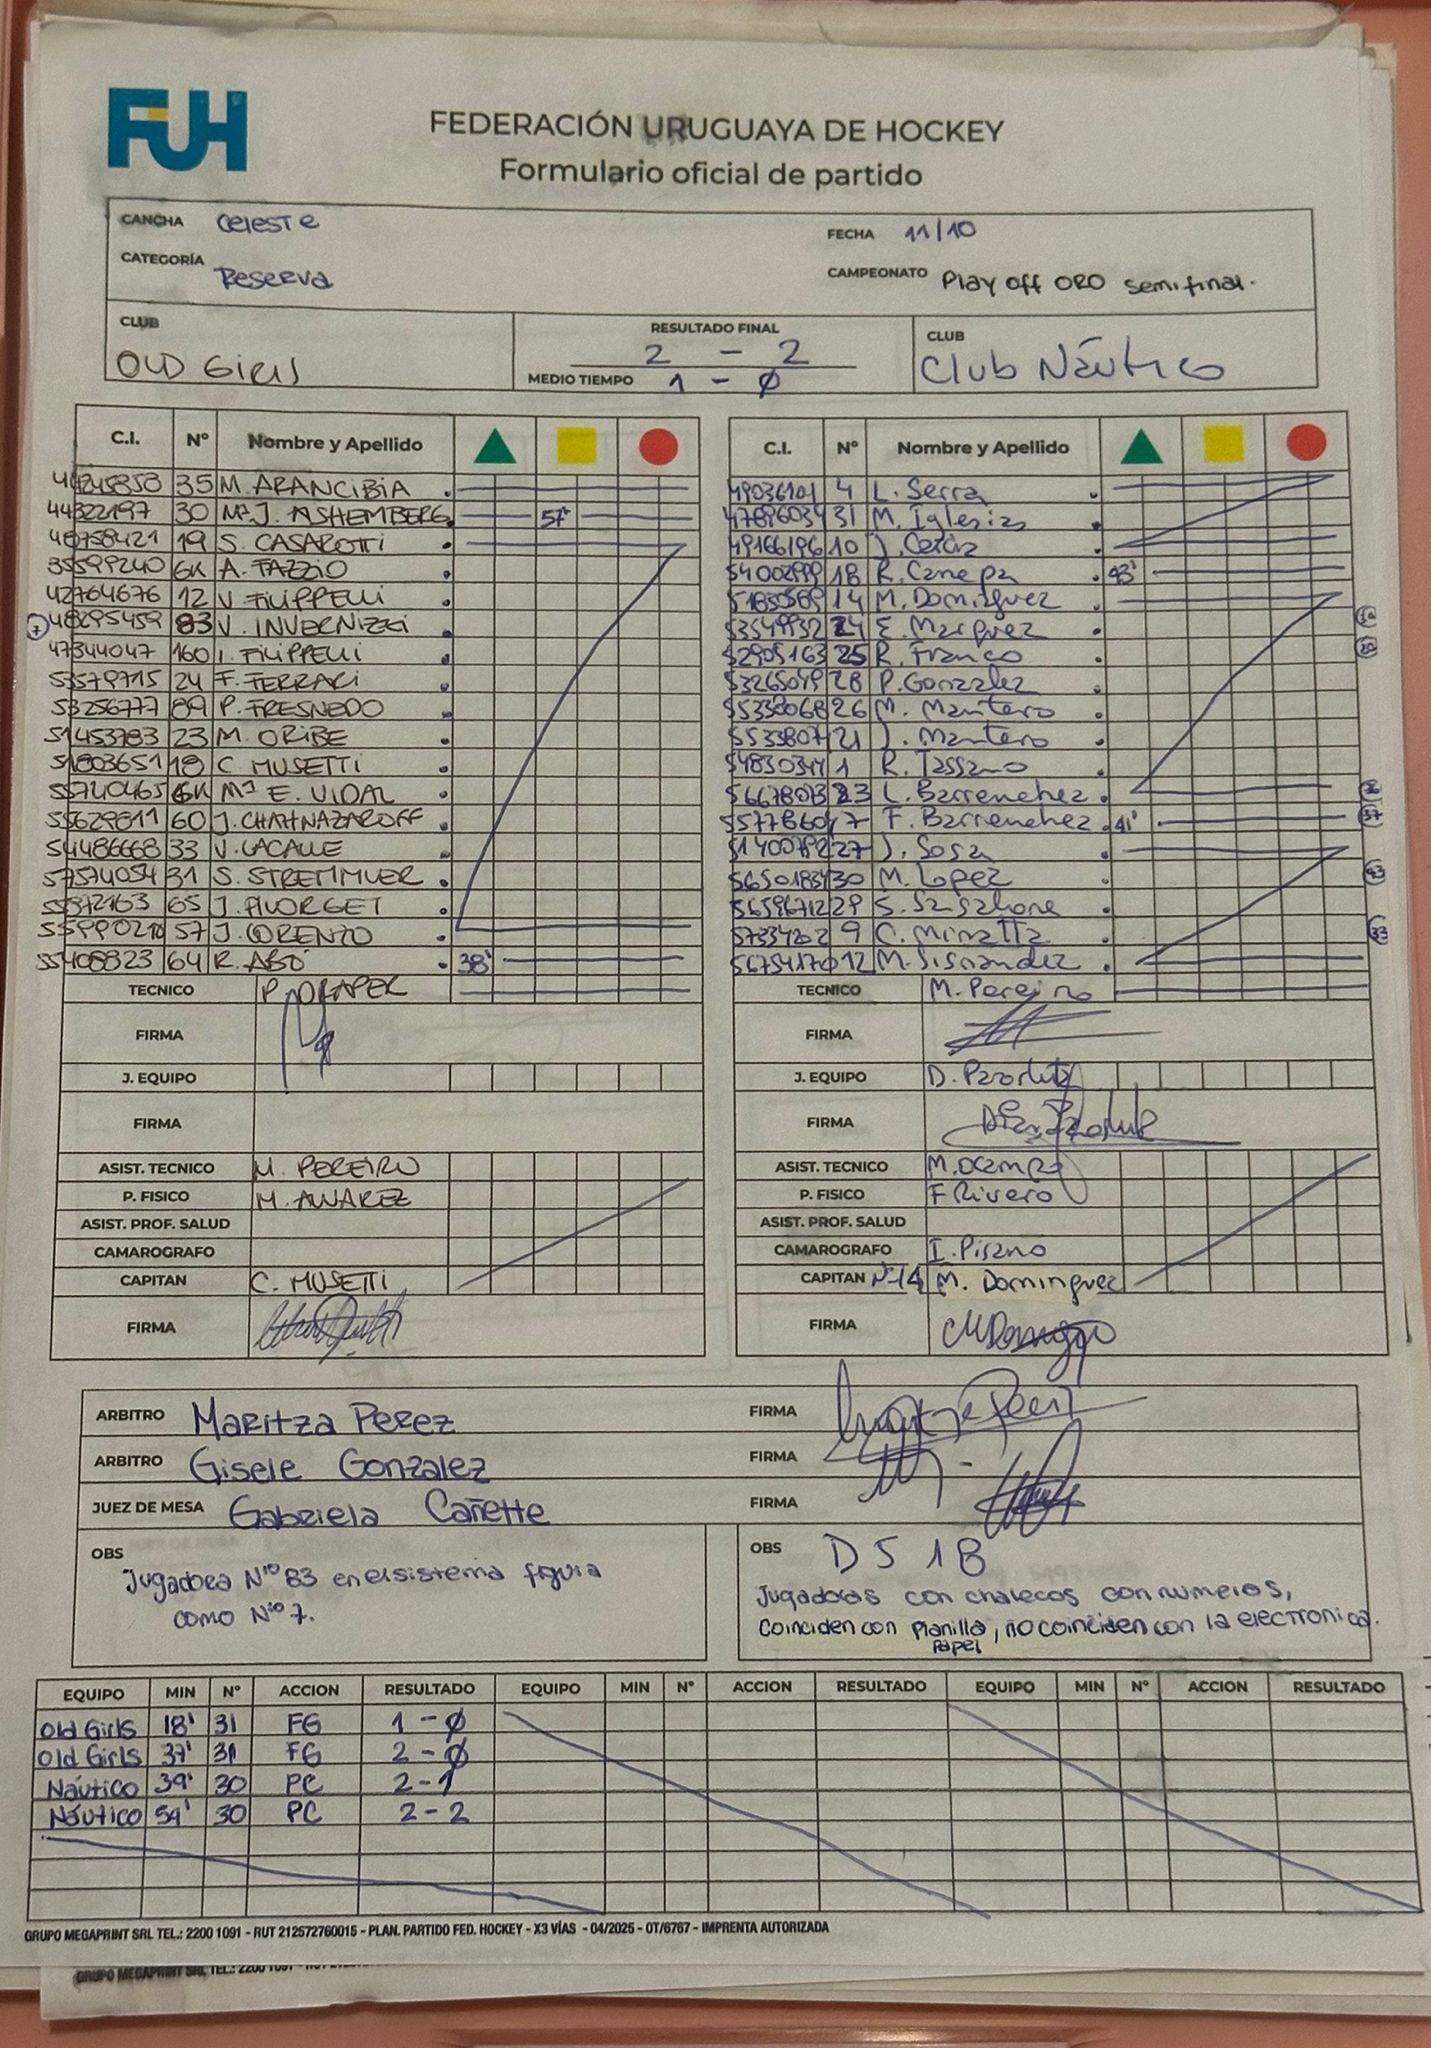 FUH
FEDERACIÓN URUGUAYA DE HOCKEY
Formulario oficial de partido
CANCHA Celeste
FECHA 11/10
CATEGORÍA Reserva
CAMPEONATO Play off ORO semifinal.
CLUB OLD GIRLS
RESULTADO FINAL 2 - 2
MEDIO TIEMPO 1 - Ø
CLUB Club Náutico
C.I. Nº Nombre y Apellido
35 M. ARANCIBIA
44322197 30 Mª J. ASHEMBERG 57'
48758421 19 S. CASAROTTI
35599240 GK A. FAZZIO
42764676 12 V. FILIPPELLI
7 48295459 83 V. INVERNIZZI
47344047 160 I. FILIPPELLI
53579715 24 F. FERRARI
53256777 89 P. FRESNEDO
51453783 23 M. ORIBE
51803651 18 C. MUSETTI
55740465 GK Mª E. VIDAL
55629811 60 J. CHAHNAZAROFF
54486668 33 V. LACALLE
57574054 31 S. STREMMLER
55372163 65 J. PIVORGET
55990210 57 J. LORENZO
55408823 64 R. ABÓ 38'
TECNICO P. DRAPER
FIRMA
J. EQUIPO
FIRMA
ASIST. TECNICO M. PEREIRO
P. FISICO M. ALVAREZ
ASIST. PROF. SALUD
CAMAROGRAFO
CAPITAN C. MUSETTI
FIRMA
C.I. Nº Nombre y Apellido
49036101 4 L. Serra
47896034 31 M. Iglesias
49166196 10 J.
54002999 18 R. Canepa 43'
14 M. Dominguez
53549932 24 E. Marquez
52905163 25 R. Franco
53265049 28 P. Gonzalez
55338068 26 M. Mantero
5533807 21 J. Mantero
54830347 1 R. Tassano
56678073 23 L. Barrenechea
7 F. Barrenechea 41' 37
51400792 27 J. Sosa
56501834 30 M. Lopez 43
56596712 29 S.
57334202 9 C. Minatta 33
56754170 12 M. Sisnandez
TECNICO M. Pereiro
FIRMA
J. EQUIPO D.
FIRMA
ASIST. TECNICO M. Ocampo
P. FISICO F Rivero
ASIST. PROF. SALUD
CAMAROGRAFO I. Pisano
CAPITAN Nº14 M. Dominguez
FIRMA
ARBITRO Maritza Perez FIRMA
ARBITRO Gisele Gonzalez FIRMA
JUEZ DE MESA Gabriela Cañette FIRMA
OBS
Jugadora Nº 83 en el sistema figura
como Nº 7.
OBS D S 1 B
Jugadoras con chalecos con numeros,
coinciden con planilla papel, no coinciden con la electronica.
EQUIPO MIN Nº ACCION RESULTADO EQUIPO MIN Nº ACCION RESULTADO EQUIPO MIN Nº ACCION RESULTADO
Old Girls 18' 31 FG 1 - Ø
Old Girls 37' 31 FG 2 - Ø
Náutico 39' 30 PC 2 - 1
Náutico 54' 30 PC 2 - 2
GRUPO MEGAPRINT SRL TEL.: 2200 1091 - RUT 212572760015 - PLAN. PARTIDO FED. HOCKEY - X3 VÍAS - 04/2025 - OT/6767 - IMPRENTA AUTORIZADA
GRUPO MEGAPRINT SRL TEL.: 2200 1091